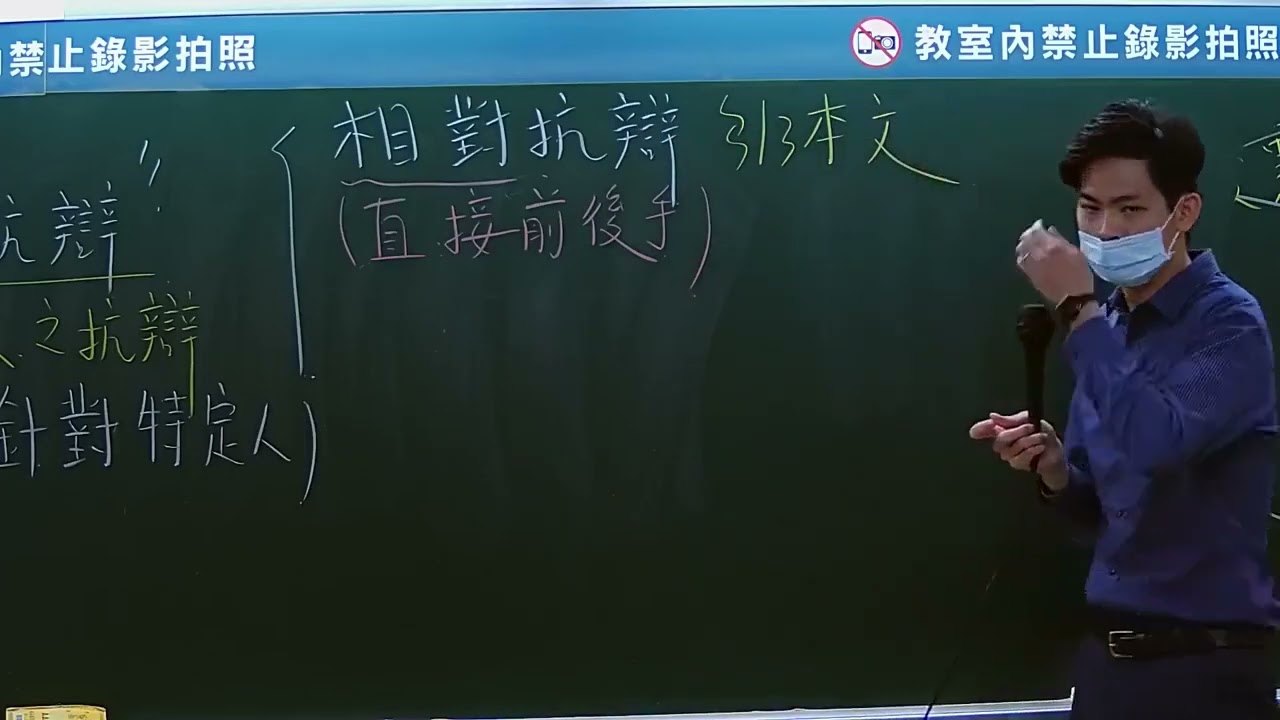 禁止錄影拍照
教室內禁止錄影拍照
相對抗辯 §13本文
(直接前後手)
抗辯"
之抗辯
針對特定人)